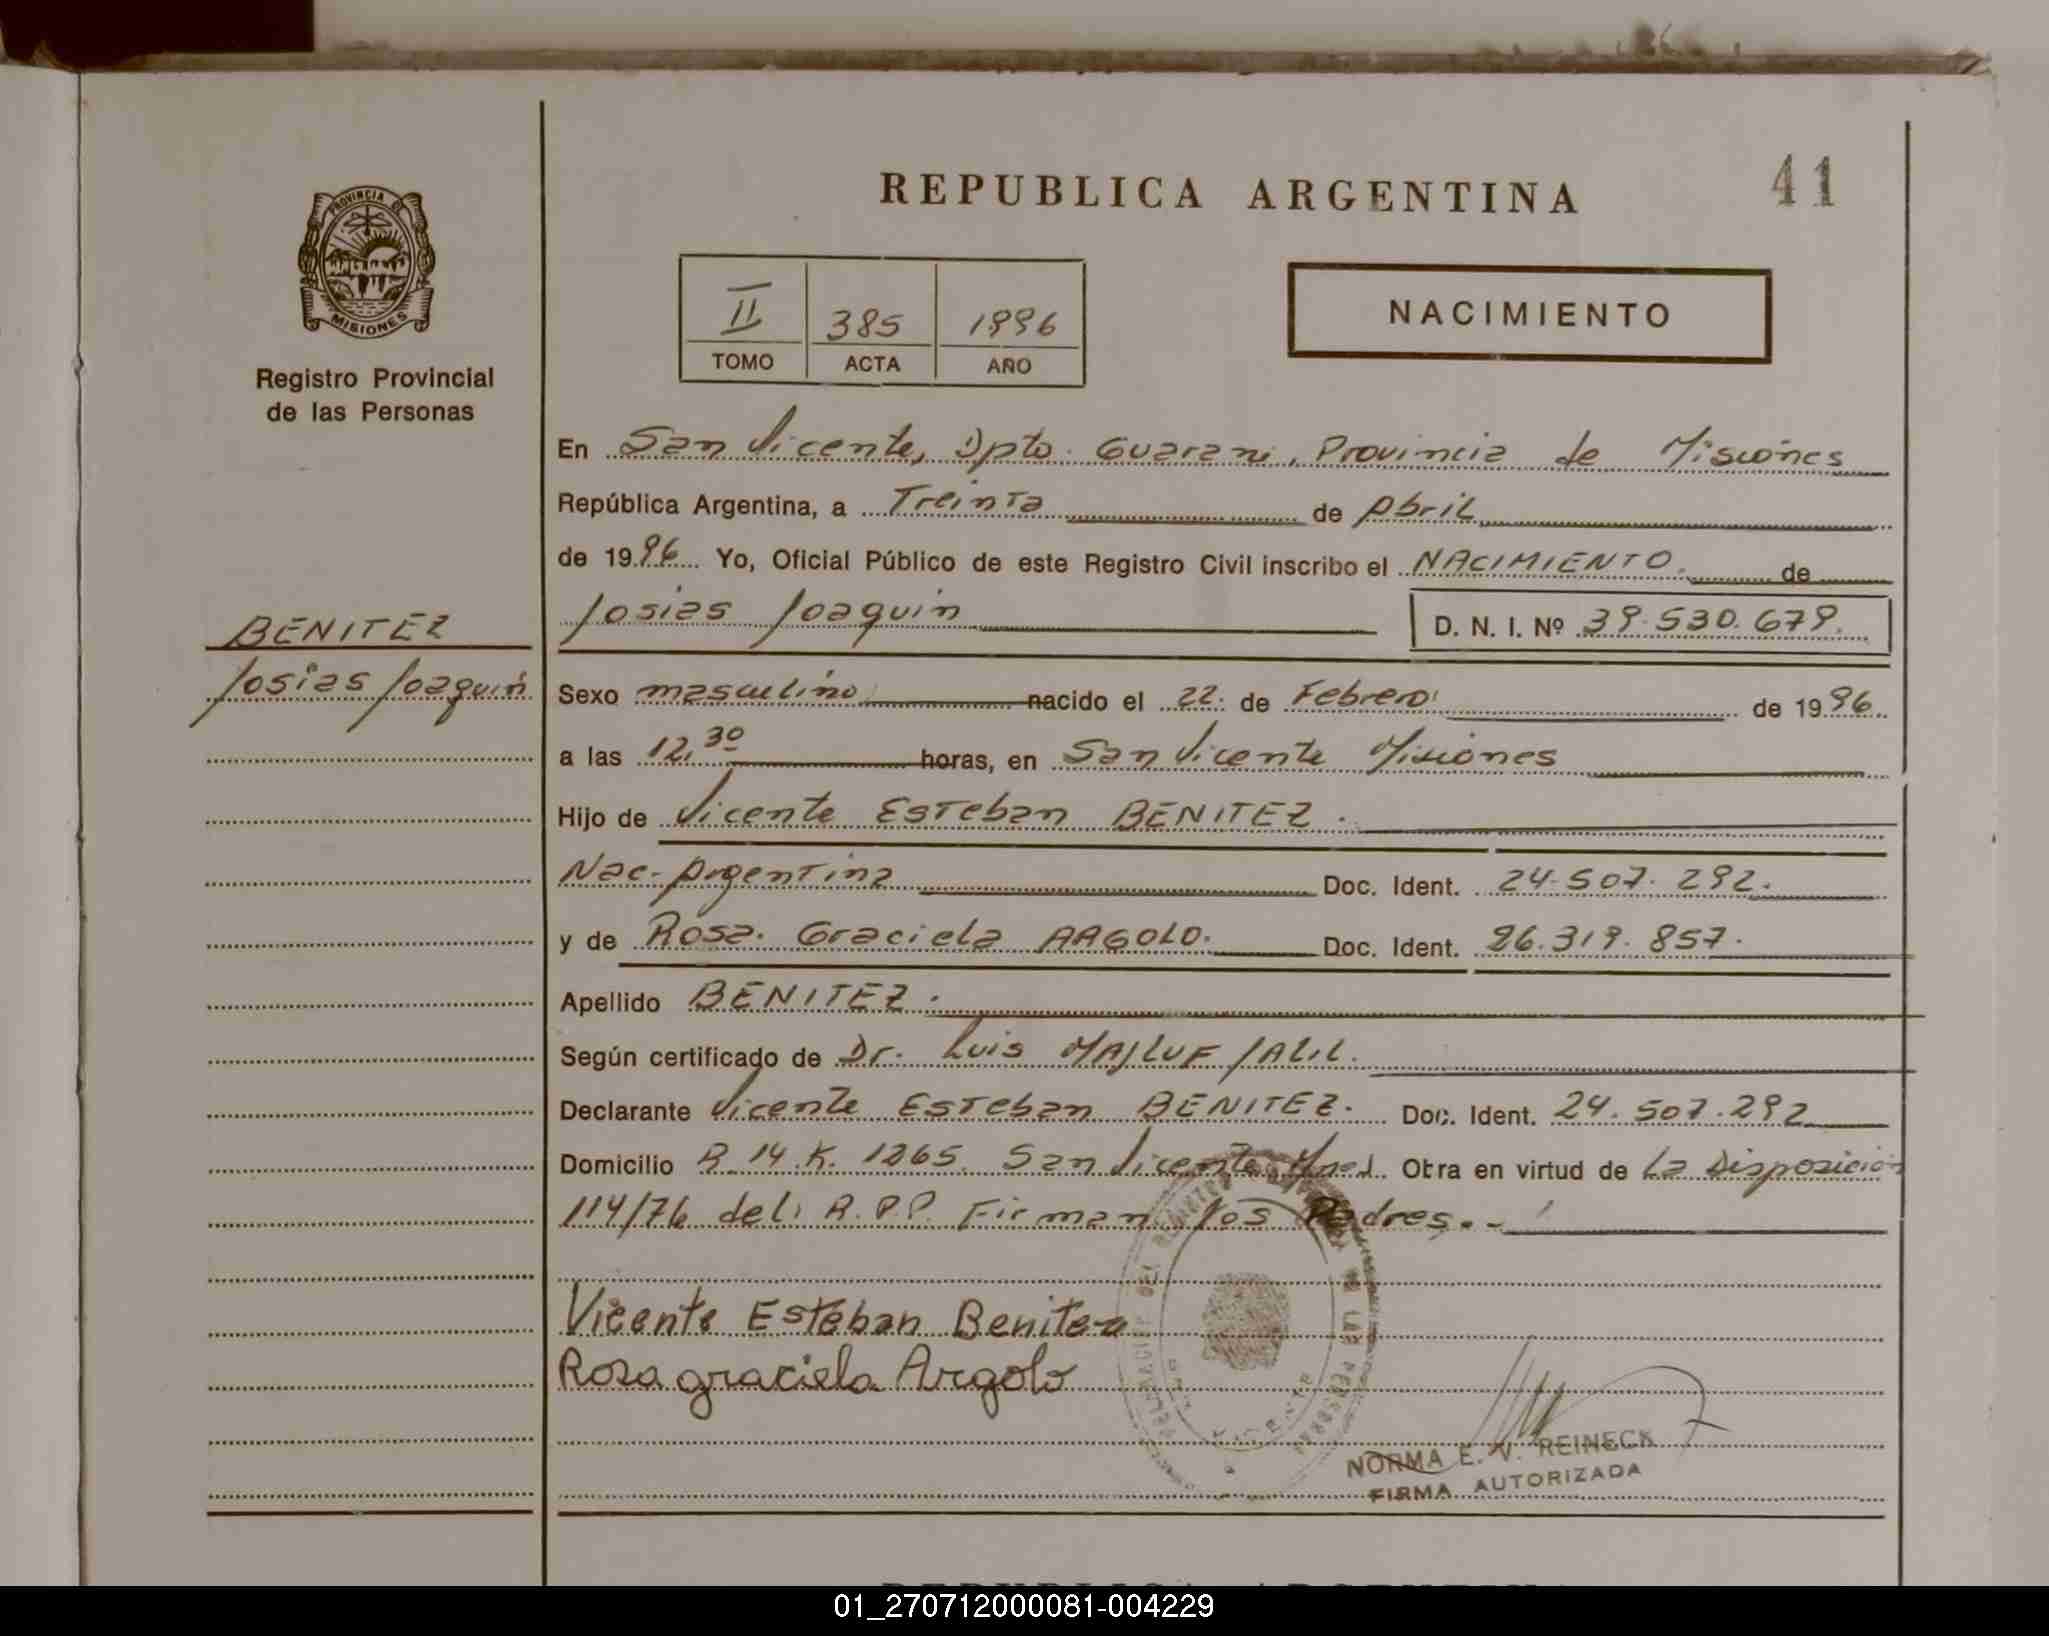 REPUBLICA ARGENTINA
41
PROVINCIA DE
MISIONES
Registro Provincial
de las Personas
II 385 1996
TOMO ACTA AÑO
NACIMIENTO
En San Vicente, Dpto. Guarani, Provincia de Misiones
República Argentina, a Treinta de Abril
de 1996 Yo, Oficial Público de este Registro Civil inscribo el NACIMIENTO. de
Josias Joaquin D. N. I. Nº 39.530.679.
BENITEZ
Josias Joaquin
Sexo masculino nacido el 22. de Febrero de 1996
a las 12,30 horas, en San Vicente Misiones
Hijo de Vicente Esteban BENITEZ.
Nac. Argentina Doc. Ident. 24.507.292.
y de Rosa. Graciela ARGOLO. Doc. Ident. 26.319.857.
Apellido BENITEZ.
Según certificado de Dr. Luis MAJLUF JALIL.
Declarante Vicente Esteban BENITEZ. Doc. Ident. 24.507.292
Domicilio R.14.K. 1265. San Vicente Mnes. Otra en virtud de La Disposición
114/76 del R.P.P. Firman los Padres.-
Vicente Esteban Benitez
Rosa graciela Argolo
DE LAS PERSONAS
NORMA E. V. REINECK
FIRMA AUTORIZADA
REPUBLICA ARGENTINA
01_270712000081-004229